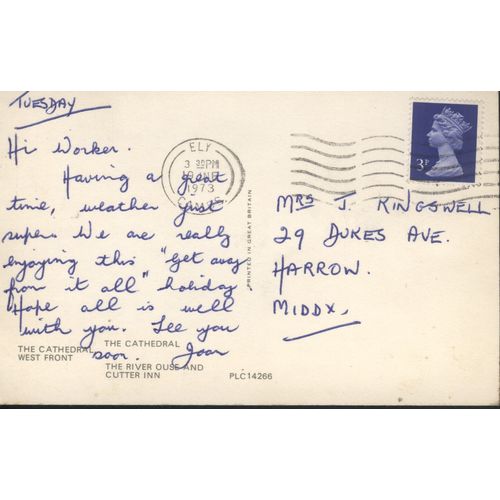 TUESDAY
Hi Worker.
Having a great
time, weather just
super. We are really
enjoying this "Get away
from it all" holiday
Hope all is well
with you. See you
soon. Joan
ELY
3 30PM
1973
CAMBS
3P
MRS J. KINGSWELL
29 DUKES AVE.
HARROW.
MIDDX.
PRINTED IN GREAT BRITAIN
THE CATHEDRAL
WEST FRONT
THE CATHEDRAL
THE RIVER OUSE AND
CUTTER INN
PLC14266